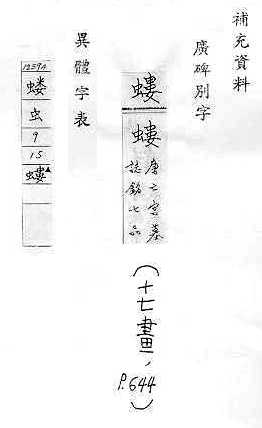 補充資料
廣碑別字
螻
螻
唐亡宮墓
誌銘七品
(十七畫,
P.644)
異體字表
1259A
蝼
虫
9
15
螻▲